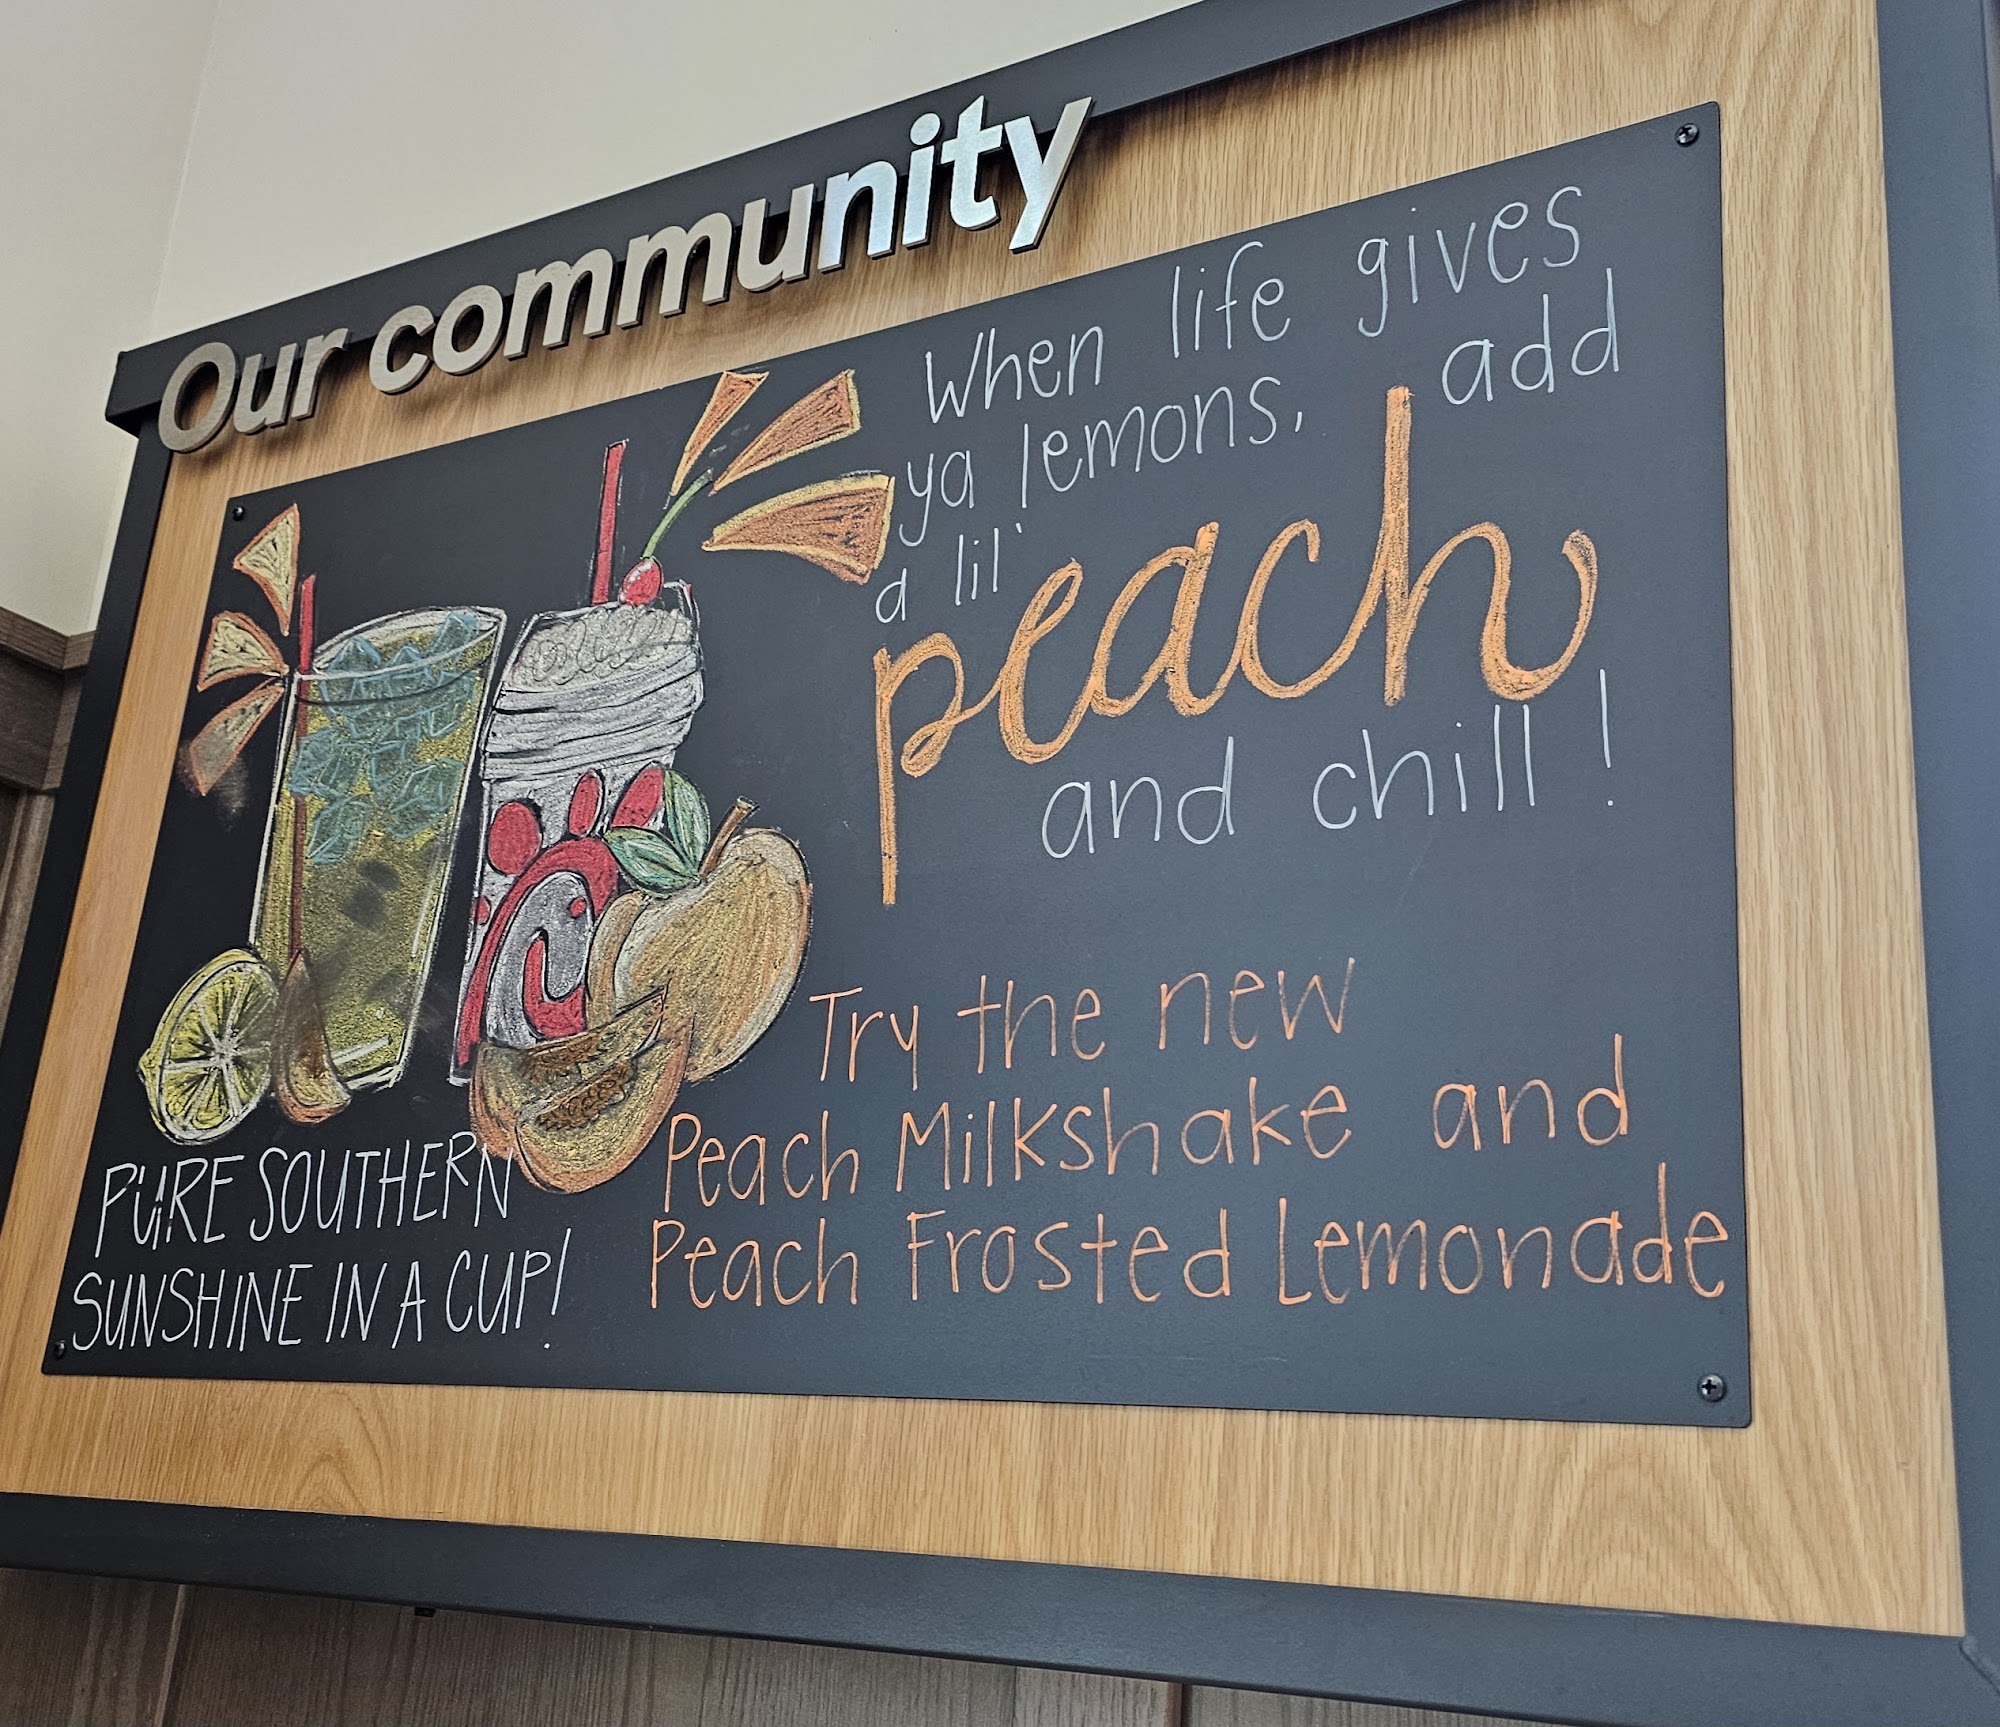 Our community
When life gives
ya lemons, add
a lil'
peach
and chill!
Try the new
Peach Milkshake and
Peach Frosted Lemonade
PURE SOUTHERN
SUNSHINE IN A CUP!